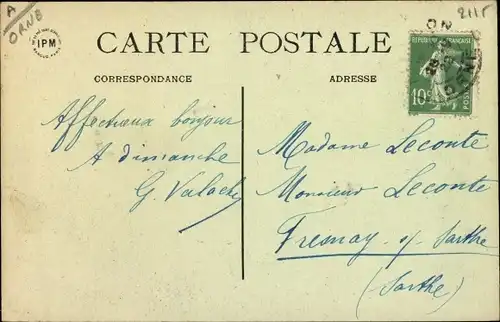 A
ORNE
2115
IPM
CARTE POSTALE
CORRESPONDANCE
ADRESSE
RÉPUBLIQUE FRANÇAISE
10c
POSTES
Affectueux bonjour
A dimanche
G Valache
Madame Leconte
Monsieur Leconte
Fresnay s/ Sarthe
(Sarthe)